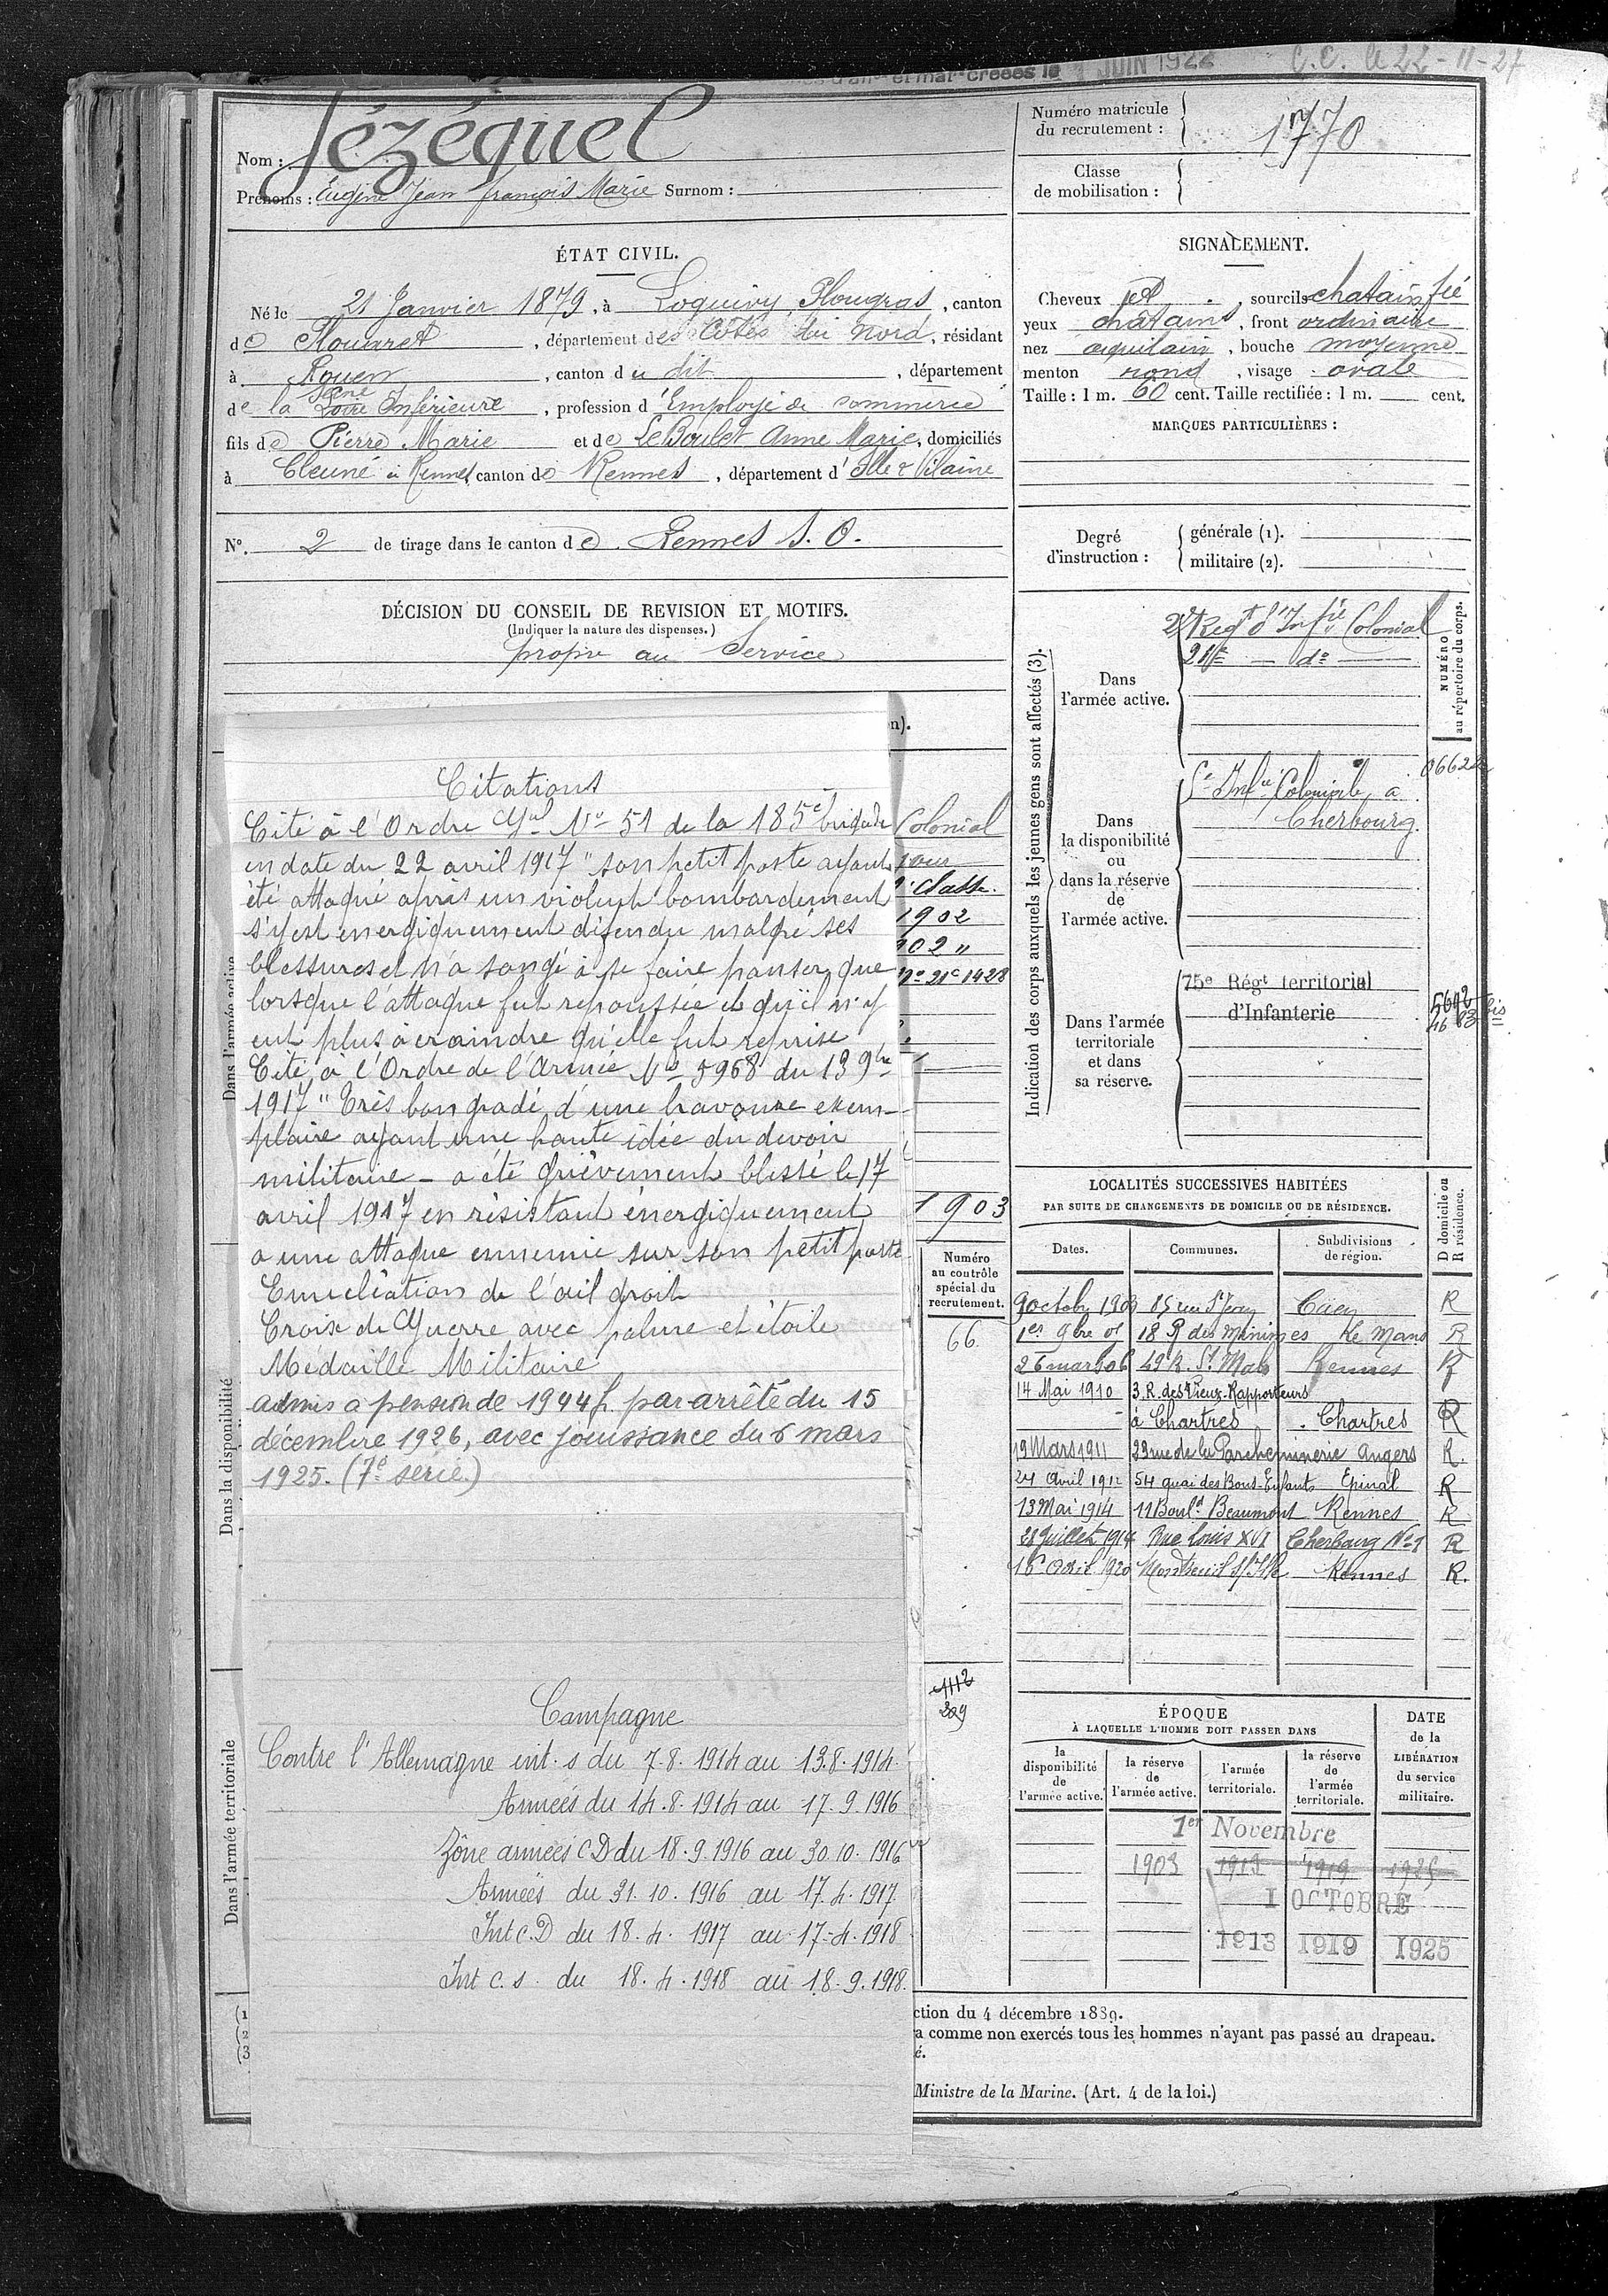 JUIN 1922
C.C. le 22-11-27
Nom : Jézéquel
Prénoms : Eugène Jean François Marie Surnom :
Numéro matricule
du recrutement : 1770
Classe
de mobilisation :
ÉTAT CIVIL.
Né le 21 Janvier 1879, à Loquivy Plougras, canton
de Plouaret, département des Côtes du Nord, résidant
à Rouen, canton du dit, département
Seine
de la Loire Inférieure, profession d'Employé de commerce
fils de Pierre Marie et de Le Boulet Anne Marie, domiciliés
à Cleuné à Rennes, canton de Rennes, département d'Ille & Vilaine
N°. 2 de tirage dans le canton de Rennes S. O.
DÉCISION DU CONSEIL DE REVISION ET MOTIFS.
(Indiquer la nature des dispenses.)
propre au Service
n).
Citations
Cité à l'Ordre Gal No 51 de la 185e brigade
en date du 22 avril 1917 " son petit poste ayant
été attaqué après un violent bombardement
s'y est énergiquement défendu malgré ses
blessures et n'a songé à se faire panser que
lorsque l'attaque fut repoussée et qu'il n'y
eut plus à craindre qu'elle fut reprise
Cité à l'Ordre de l'Armée No 5968 du 13 9bre
1917 " Très bon gradé d'une bravoure exem-
plaire ayant une haute idée du devoir
militaire - a été grièvement blessé le 17
avril 1917 en résistant énergiquement
a une attaque ennemie sur son petit poste
Enucléation de l'œil droit
Croix de Guerre avec palme et étoile
Médaille Militaire
admis a pension de 1944 f. par arrêté du 15
décembre 1926, avec jouissance du 6 mars
1925. (7e série.)
Campagne
Contre l'Allemagne int. s du 7-8. 1914 au 13.8.1914
Armées du 14.8.1914 au 17.9.1916
Zône armées CD du 18.9.1916 au 30.10.1916
Armées du 31.10.1916 au 17.4.1917
Int C.D du 18.4.1917 au 17-4.1918
Int c.s. du 18.4.1918 au 18.9.1918.
Colonial
classe.
1902
902 "
No 21c 1428
1903
Numéro
au contrôle
spécial du
recrutement.
66
1112
329
Dans l'armée active
Dans la disponibilité
Dans l'armée territoriale
(1
(2
(3
SIGNALEMENT.
Cheveux et, sourcils chatain fcé
yeux châtains, front ordinaire
nez aquilain, bouche moyenne
menton rond, visage ovale
Taille : 1 m. 60 cent. Taille rectifiée : 1 m. — cent.
MARQUES PARTICULIÈRES :
Degré
d'instruction :
générale (1).
militaire (2).
Indication des corps auxquels les jeunes gens sont affectés (3).
NUMÉRO
au répertoire du corps.
Dans
l'armée active.
2e Regt d'Infie Colonial
21e — do —
Dans
la disponibilité
ou
dans la réserve
de
l'armée active.
Infie Coloniale à
Cherbourg.
06622
Dans l'armée
territoriale
et dans
sa réserve.
75e Régt territorial
d'Infanterie
bis
LOCALITÉS SUCCESSIVES HABITÉES
PAR SUITE DE CHANGEMENTS DE DOMICILE OU DE RÉSIDENCE.
Dates. Communes. Subdivisions
de région.
D domicile ou
R résidence.
9 octobre 1903 85 rue St Jean Caen R
1er 9bre 05 18 R des Minimes Le Mans R
26 mars 06 49 R. St Malo Rennes R
14 Mai 1910 3. R. des Vieux-Rapporteurs
à Chartres. Chartres R
19 Mars 1911 23 rue de la Parcheminerie Angers R.
24 Avril 1912 54 quai des Bons-Enfants Epinal R
13 Mai 1914 11 Bould Beaumont Rennes R
28 Juillet 1914 Rue Louis XVI Cherbourg No 1 R
16 Avril 1920 Montreuil s/Ille Rennes R.
ÉPOQUE
À LAQUELLE L'HOMME DOIT PASSER DANS
la
disponibilité
de
l'armée active.
la réserve
de
l'armée active.
l'armée
territoriale.
la réserve
de
l'armée
territoriale.
DATE
de la
LIBÉRATION
du service
militaire.
1er Novembre
1903 1913 1919 1925
1 OCTOBRE
1913 1919 1925
ction du 4 décembre 1889.
a comme non exercés tous les hommes n'ayant pas passé au drapeau.
é.
Ministre de la Marine. (Art. 4 de la loi.)